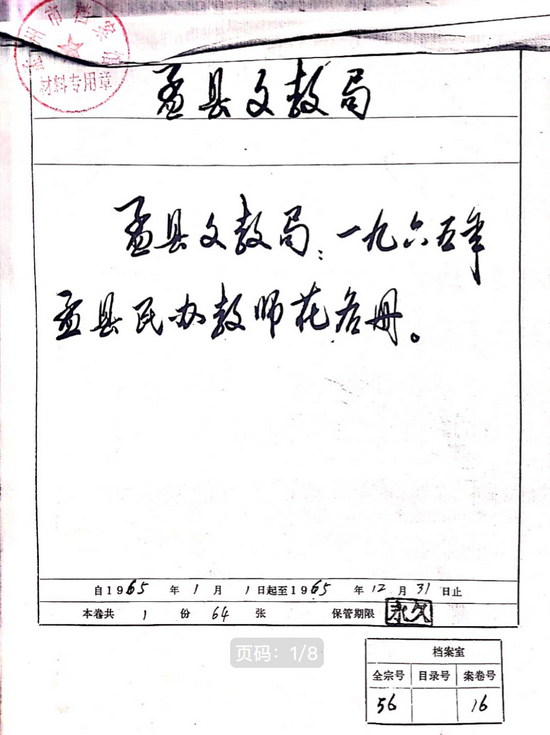 州市档案馆
材料专用章
孟县文教局
孟县文教局：一九六五年
孟县民办教师花名册。
自1965年1月1日起至1965年12月31日止
本卷共 1 份 64 张 保管期限 永久
页码：1/8
档案室
全宗号 目录号 案卷号
56 16